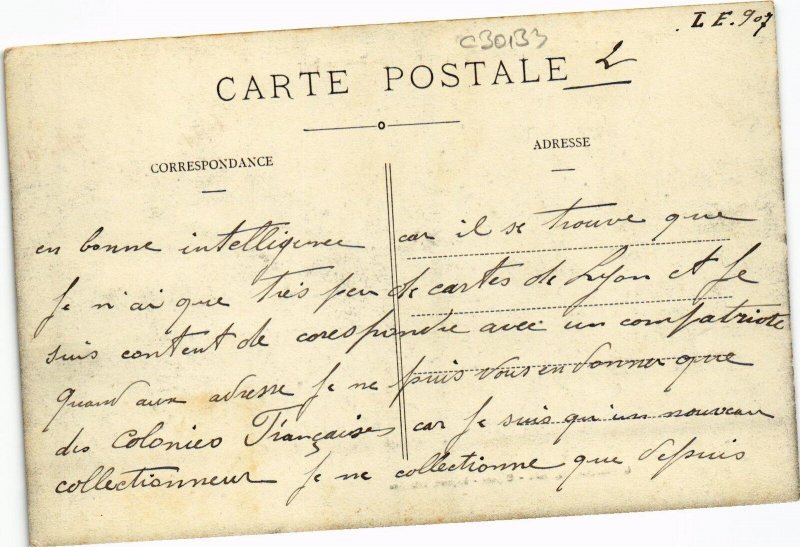 I E. 907
C30133
CARTE POSTALE 2
CORRESPONDANCE
ADRESSE
en bonne intelligence car il se trouve que
Je n'ai que très peu de cartes de Lyon et Je
suis content de corespondre avec un compatriote
Quand aux adresse Je ne puis vous en donner que
des Colonies Françaises car Je suis qu'un nouveau
collectionneur Je ne collectionne que depuis